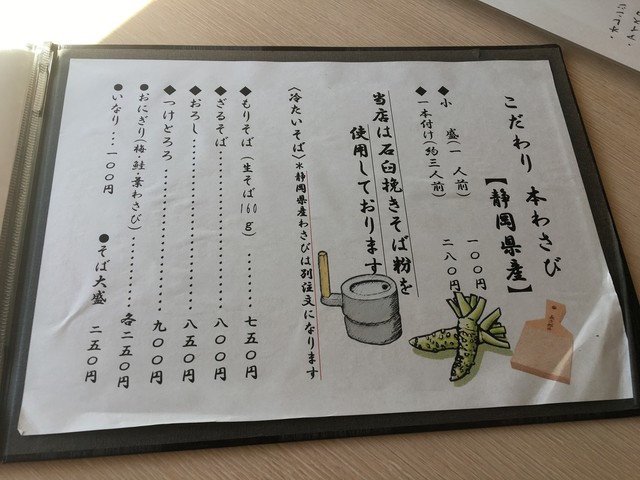 こだわり 本わさび
【静岡県産】
◆小 盛(一人前) 一〇〇円
◆一本付け(約三人前) 二八〇円
当店は石臼挽きそば粉を
使用しております
〈冷たいそば〉*静岡県産わさびは別注文になります
◆もりそば(生そば160g)………七五〇円
◆ざるそば………八〇〇円
◆おろし………八五〇円
◆つけとろろ………九〇〇円
●おにぎり(梅・鮭・葉わさび)………各二五〇円
●いなり…一〇〇円
●そば大盛 二五〇円